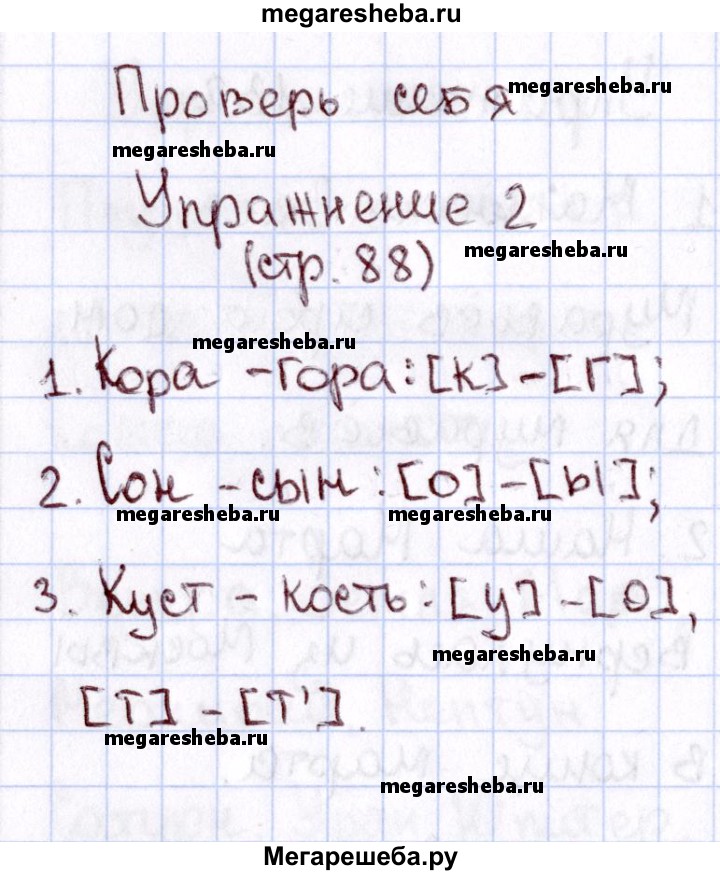 megaresheba.ru
Проверь себя
megaresheba.ru
megaresheba.ru
Упражнение 2
(стр. 88)
megaresheba.ru
megaresheba.ru
1. Кора - гора: [К] - [Г];
2. Сон - сын: [О] - [Ы];
megaresheba.ru
megaresheba.ru
3. Куст - кость: [У] - [О],
megaresheba.ru
[Т] - [Т'].
megaresheba.ru
megaresheba.ru
Мегарешеба.ру